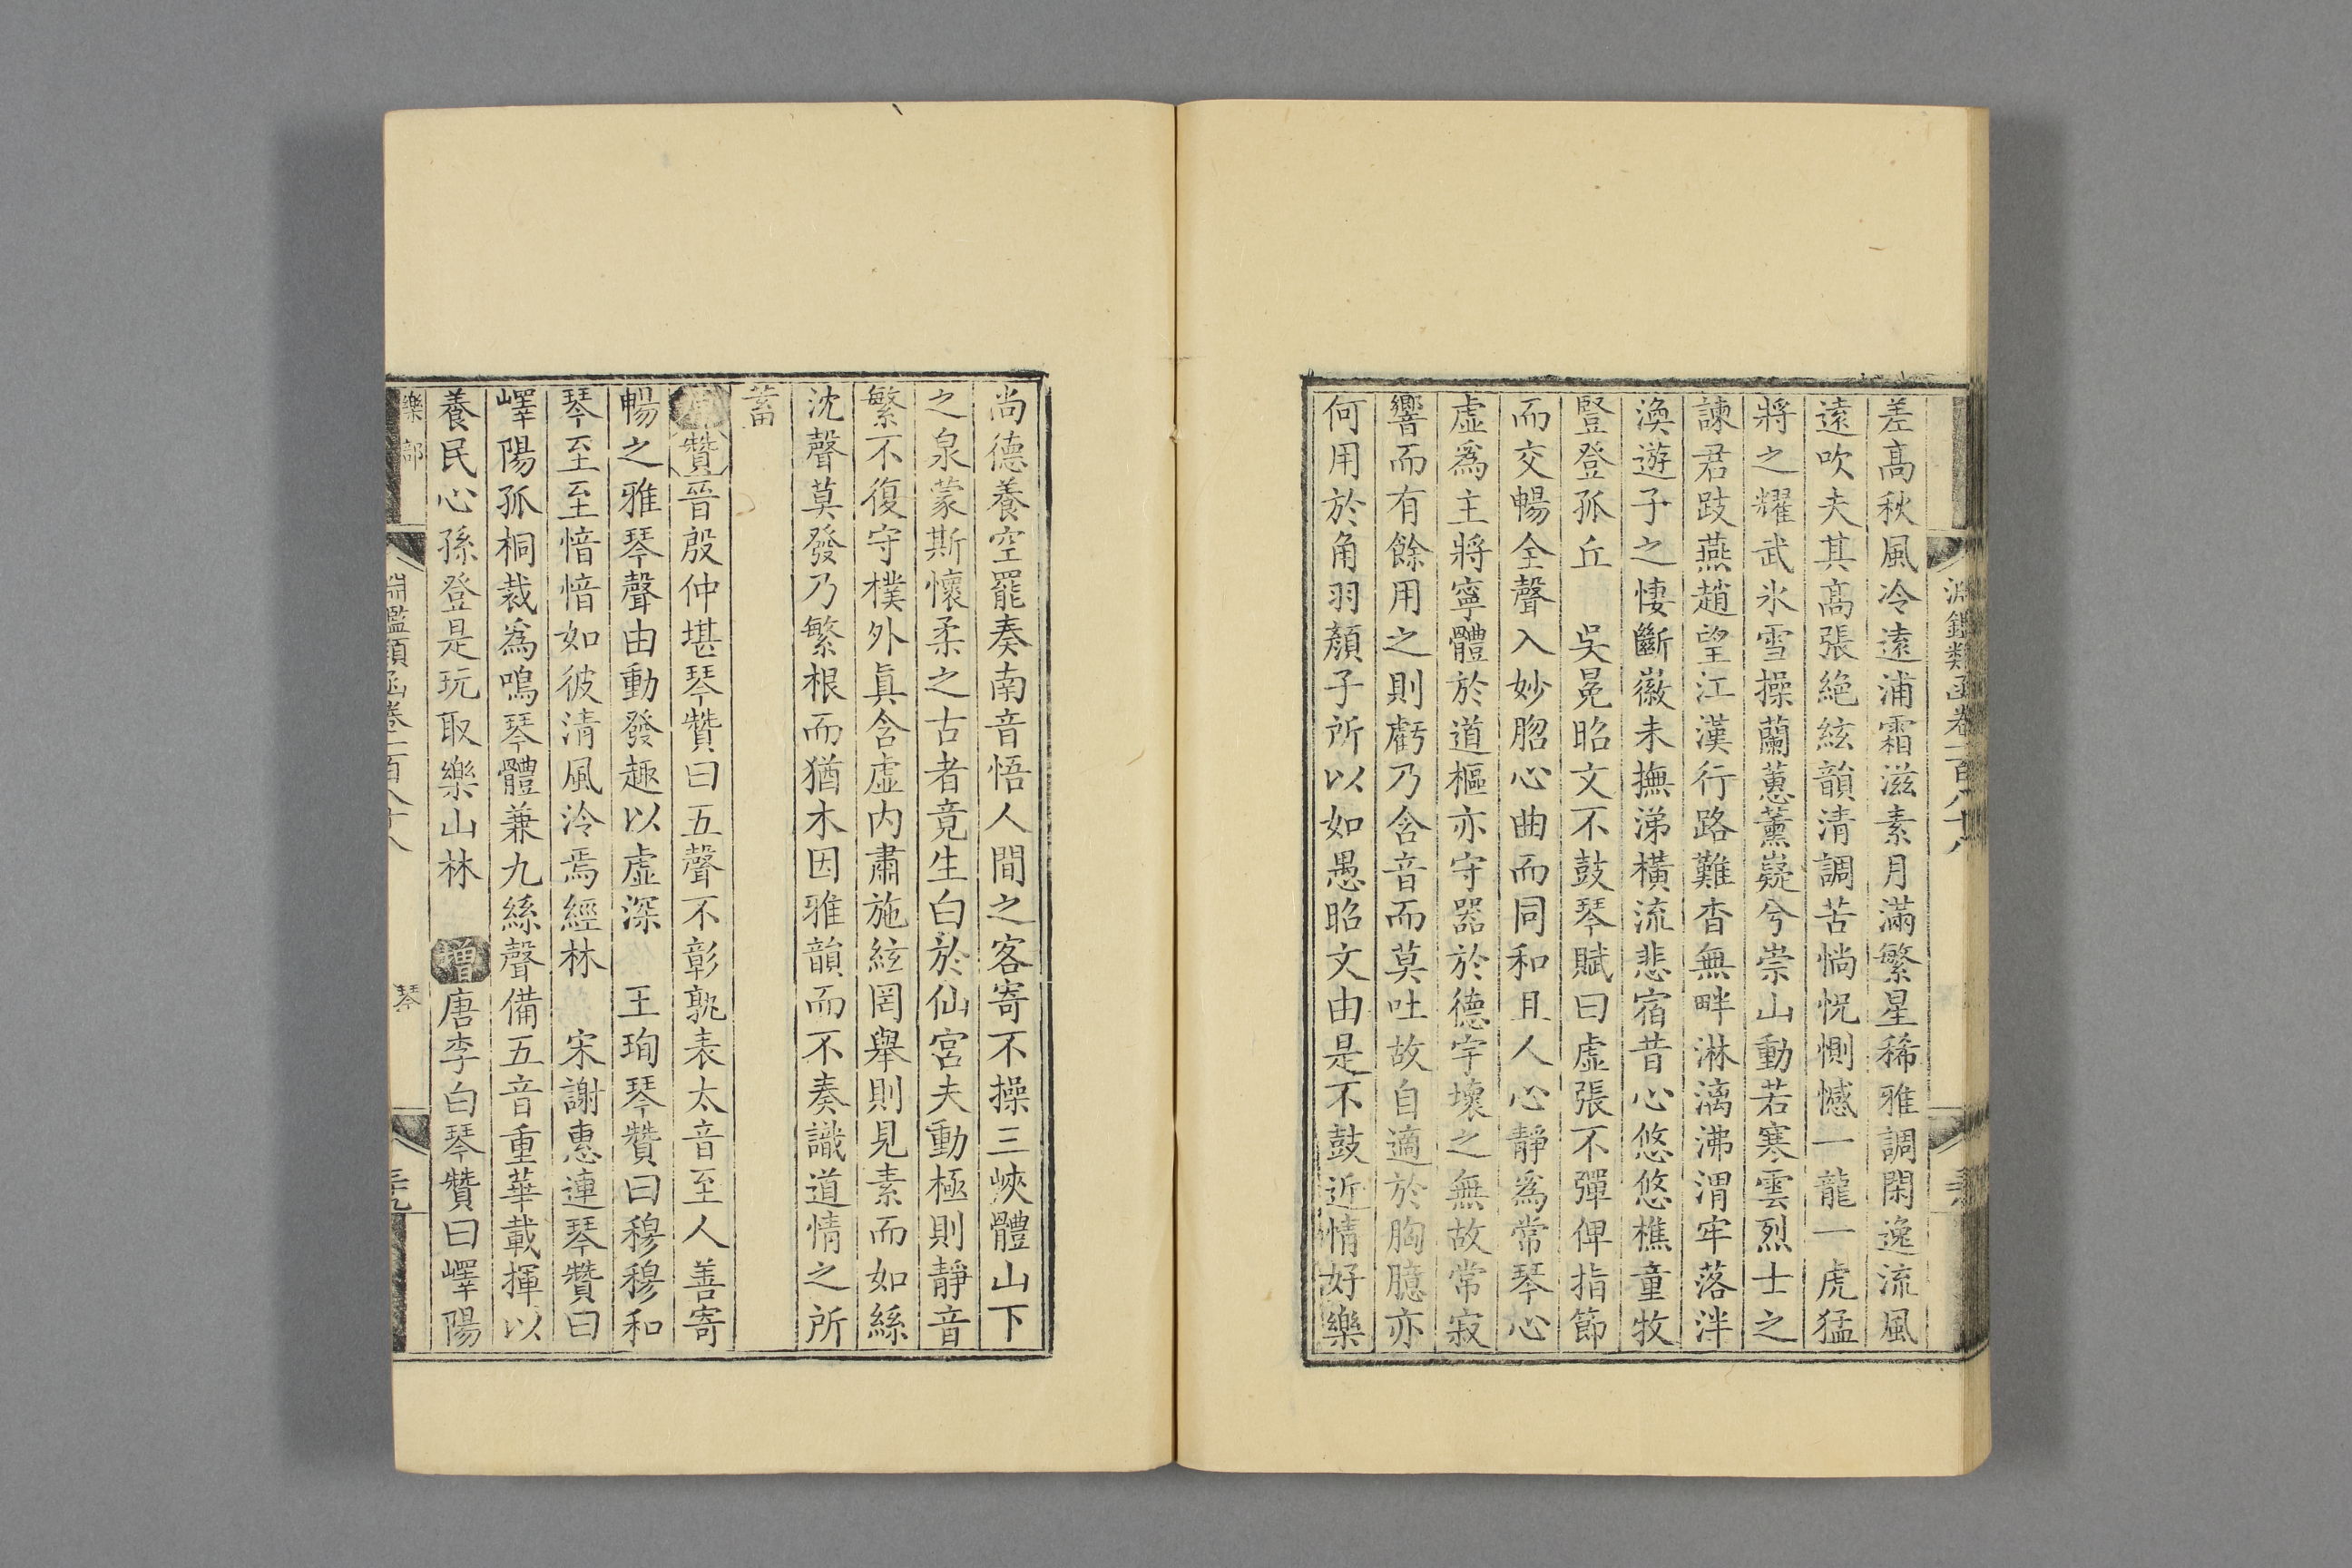 淵鑑類函卷一百八十八
差高秋風冷遠浦霜滋素月滿繁星稀雅調閑逸流風
遠吹夫其高張絕絃韻清調苦惝怳惻憾一龍一虎猛
將之耀武氷雪操蘭蕙薰嶷兮崇山動若寒雲烈士之
諫君跂燕趙望江漢行路難杳無畔淋漓沸渭牢落泮
渙遊子之悽斷徽未撫涕橫流悲宿昔心悠悠樵童牧
豎登孤丘　吳冕昭文不鼓琴賦曰虛張不彈俾指節
而交暢全聲入妙脗心曲而同和且人心靜爲常琴心
虛爲主將寧體於道樞亦守器於德宇壞之無故常寂
響而有餘用之則虧乃含音而莫吐故自適於胸臆亦
何用於角羽顏子所以如愚昭文由是不鼓近情好樂
尚德養空罷奏南音悟人間之客寄不操三峽體山下
之泉蒙斯懷柔之古者竟生白於仙宮夫動極則靜音
繁不復守樸外眞含虛內肅施絃罔舉則見素而如絲
沈聲莫發乃繁根而猶木因雅韻而不奏識道情之所
蓄
贊晉殷仲堪琴贊曰五聲不彰孰表太音至人善寄
暢之雅琴聲由動發趣以虛深　王珣琴贊曰穆穆和
琴至至愔愔如彼清風泠焉經林　宋謝惠連琴贊曰
嶧陽孤桐裁爲鳴琴體兼九絲聲備五音重華載揮以
養民心孫登是玩取樂山林　增唐李白琴贊曰嶧陽
樂部　淵鑑類函卷一百八十八　琴